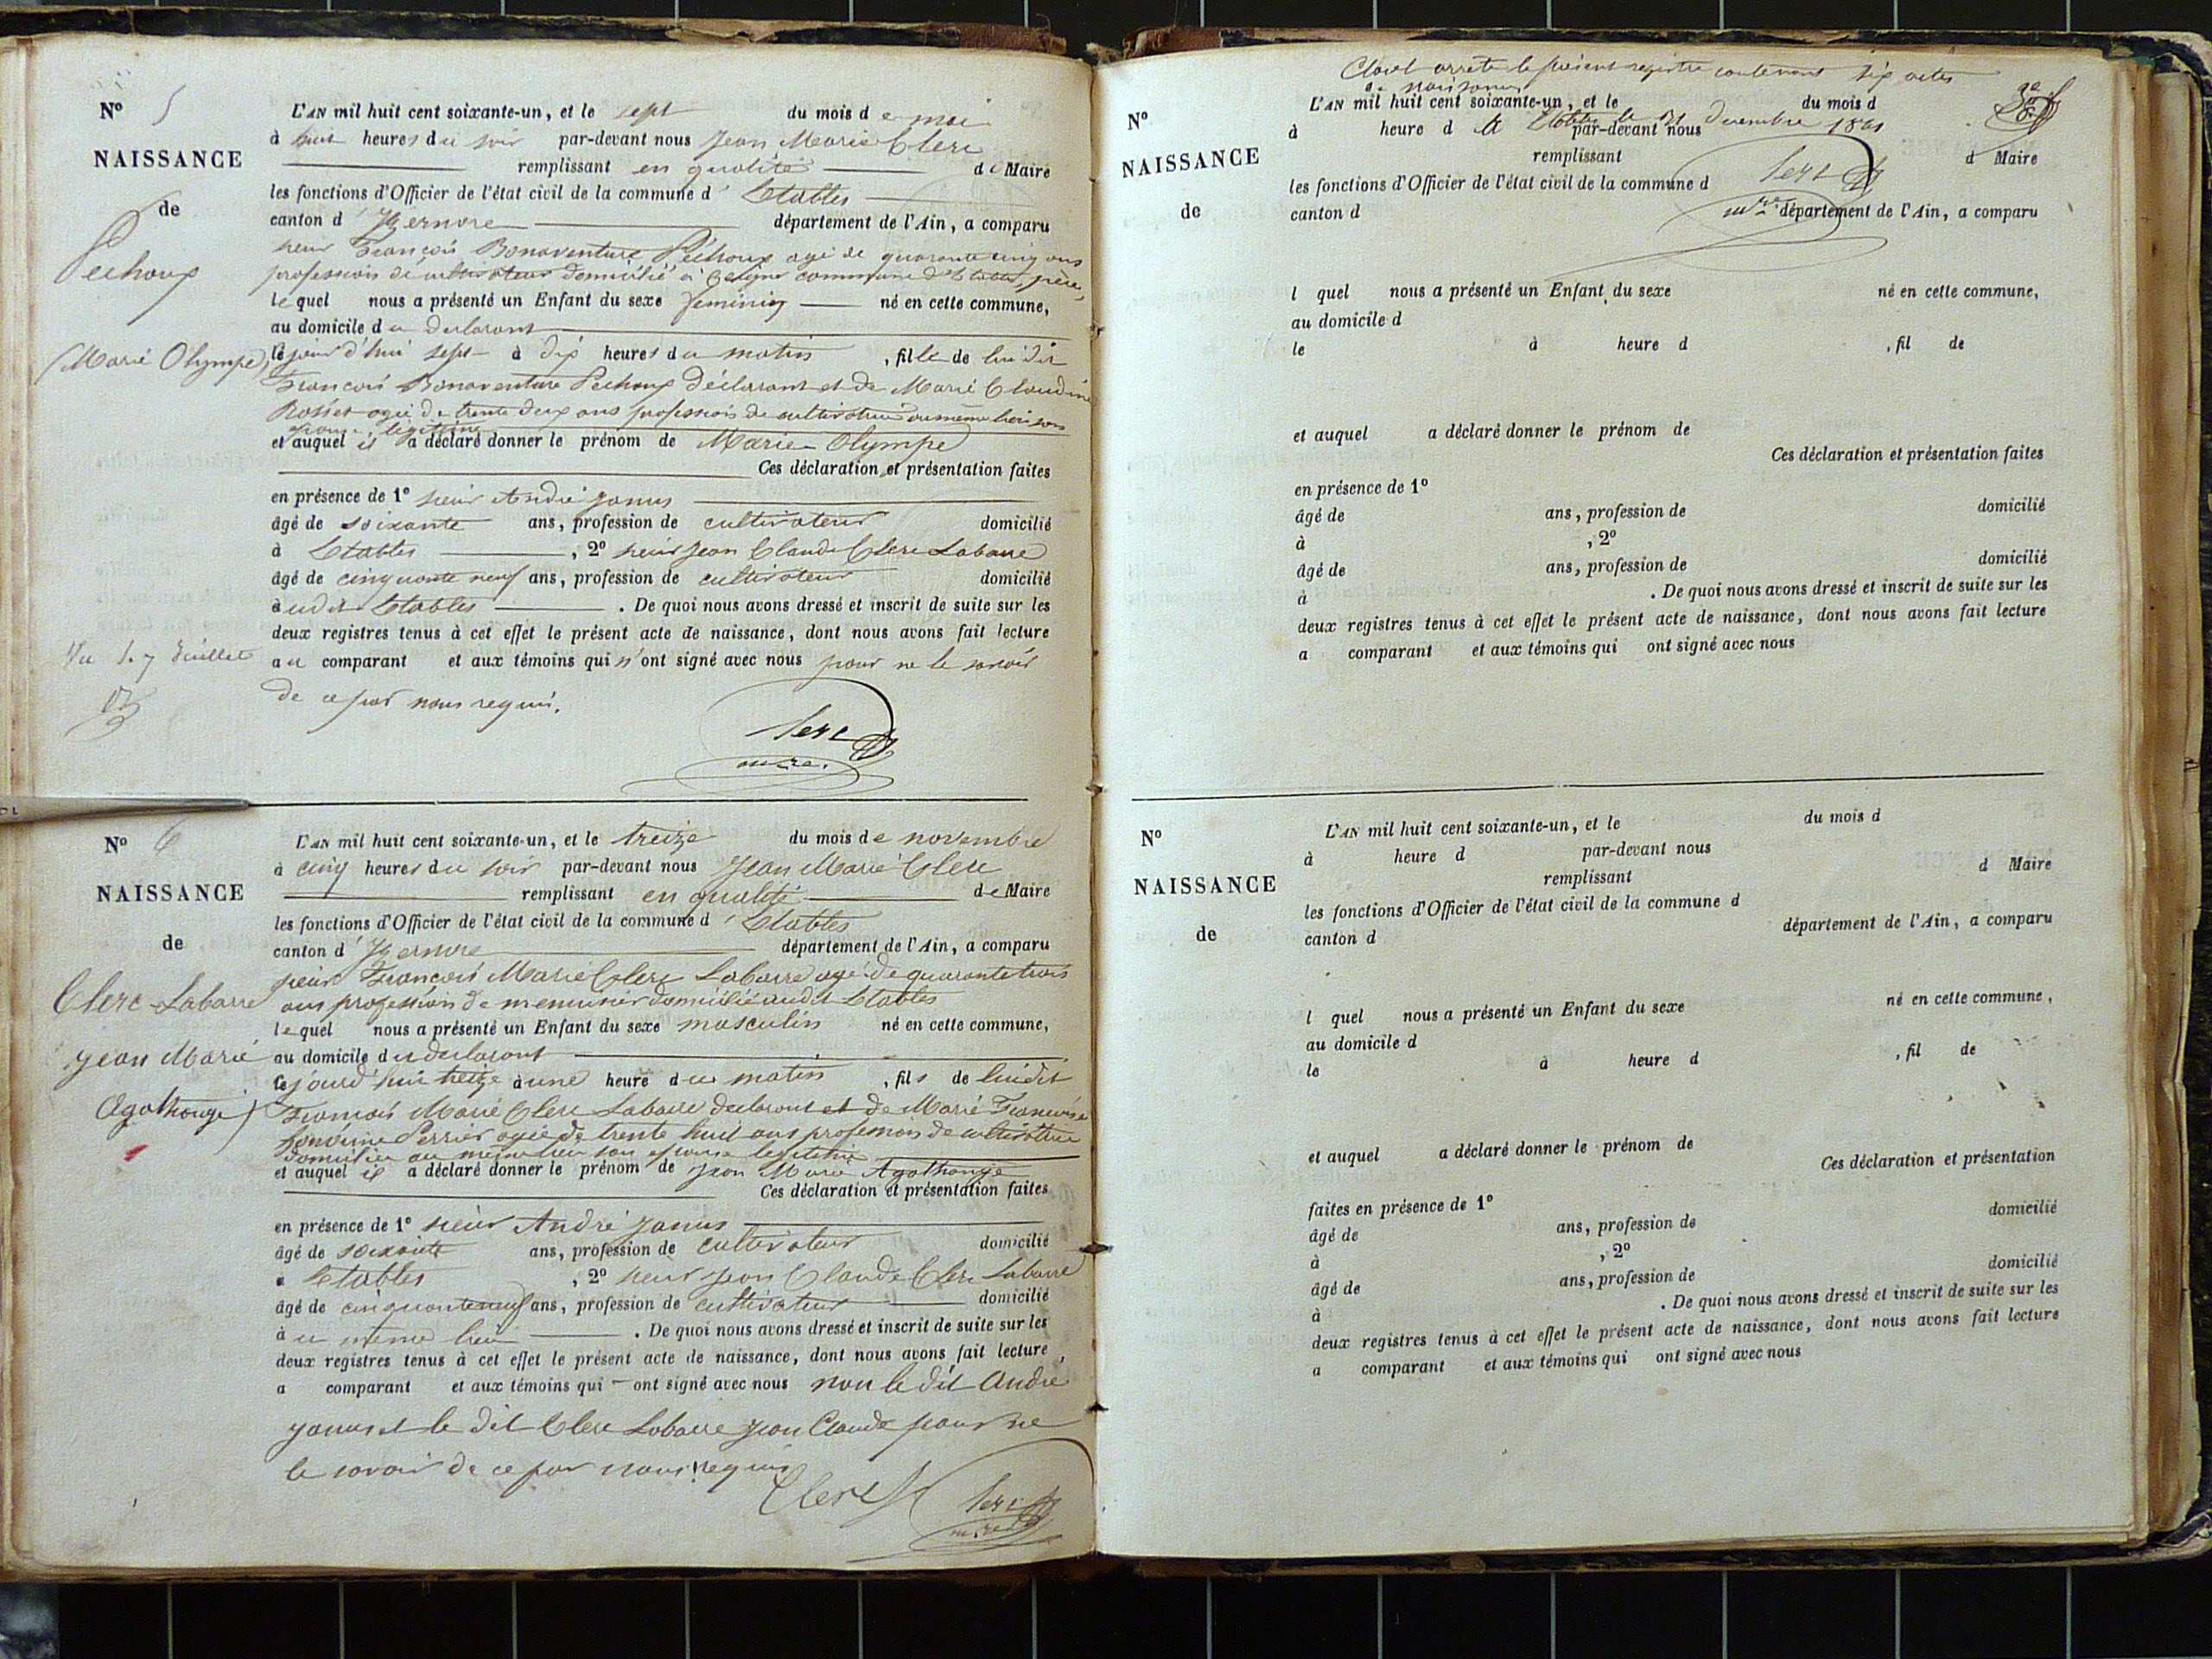 N° 5
NAISSANCE
de
Pechoux
(Marie Olympe)
Vu le 7 Juillet
L'AN mil huit cent soixante-un, et le sept du mois de mai
à huit heures du soir par-devant nous Jean Marie Clerc
remplissant en qualité de Maire
les fonctions d'Officier de l'état civil de la commune d' Etables
canton d' Izernore département de l'Ain, a comparu
sieur François Bonaventure Pechoux agé de quarante cinq ans
profession de cultivateur domicilié à commune d'Etables, père,
lequel nous a présenté un Enfant du sexe feminin né en cette commune,
au domicile du declarant
le jour d'hui sept à dix heures du matin, fille de lui dit
François Bonaventure Pechoux déclarant et de Marie Claudine
Rosset agée de trente deux ans profession de cultivatrice au même lieu son
épouse légitime
et auquel il a déclaré donner le prénom de Marie Olympe
Ces déclaration et présentation faites
en présence de 1° sieur André Janus
âgé de soixante ans, profession de cultivateur domicilié
à Etables, 2° sieur Jean Claude Clerc Labarre
âgé de cinquante neuf ans, profession de cultivateur domicilié
audit Etables. De quoi nous avons dressé et inscrit de suite sur les
deux registres tenus à cet effet le présent acte de naissance, dont nous avons fait lecture
au comparant et aux témoins qui n'ont signé avec nous pour ne le savoir
de ce par nous requis.
Clerc
maire.
N° 6
NAISSANCE
de
Clerc-Labarre
Jean Marie
Agathange)
L'AN mil huit cent soixante-un, et le treize du mois de novembre
à cinq heures du soir par-devant nous Jean Marie Clerc
remplissant en qualité de Maire
les fonctions d'Officier de l'état civil de la commune d' Etables
canton d' Izernore département de l'Ain, a comparu
sieur François Marie Clerc Labarre agé de quarante trois
ans profession de menuisier domicilié audit Etables
lequel nous a présenté un Enfant du sexe masculin né en cette commune,
au domicile du declarant
le jourd'hui treize à une heure du matin, fils de lui dit
François Marie Clerc Labarre declarant et de Marie Françoise
Perrier agée de trente huit ans profession de cultivatrice
domiciliée au même lieu son épouse legitime
et auquel il a déclaré donner le prénom de Jean Marie Agathange
Ces déclaration et présentation faites
en présence de 1° sieur André Janus
âgé de soixante ans, profession de cultivateur domicilié
à Etables, 2° sieur Jean Claude Clerc Labarre
âgé de cinquante neuf ans, profession de cultivateur domicilié
au même lieu. De quoi nous avons dressé et inscrit de suite sur les
deux registres tenus à cet effet le présent acte de naissance, dont nous avons fait lecture
a comparant et aux témoins qui ont signé avec nous non le dit André
Janus et le dit Clerc Labarre Jean Claude pour ne
le savoir de ce par nous requis
Clerc Clerc
maire
Clos et arrêté le présent registre contenant six actes
de naissances
N°
NAISSANCE
de
L'AN mil huit cent soixante-un, et le du mois d
à heure d A Etables le 31 Decembre 1861 par-devant nous
remplissant d Maire
les fonctions d'Officier de l'état civil de la commune d Clerc
canton d maire département de l'Ain, a comparu
l quel nous a présenté un Enfant du sexe né en cette commune,
au domicile d
le à heure d , fil de
et auquel a déclaré donner le prénom de
Ces déclaration et présentation faites
en présence de 1°
âgé de ans, profession de domicilié
à , 2°
âgé de ans, profession de domicilié
à . De quoi nous avons dressé et inscrit de suite sur les
deux registres tenus à cet effet le présent acte de naissance, dont nous avons fait lecture
a comparant et aux témoins qui ont signé avec nous
N°
NAISSANCE
de
L'AN mil huit cent soixante-un, et le du mois d
à heure d par-devant nous
remplissant d Maire
les fonctions d'Officier de l'état civil de la commune d
canton d département de l'Ain, a comparu
l quel nous a présenté un Enfant du sexe né en cette commune,
au domicile d
le à heure d , fil de
et auquel a déclaré donner le prénom de
Ces déclaration et présentation
faites en présence de 1°
âgé de ans, profession de domicilié
à , 2°
âgé de ans, profession de domicilié
à . De quoi nous avons dressé et inscrit de suite sur les
deux registres tenus à cet effet le présent acte de naissance, dont nous avons fait lecture
a comparant et aux témoins qui ont signé avec nous